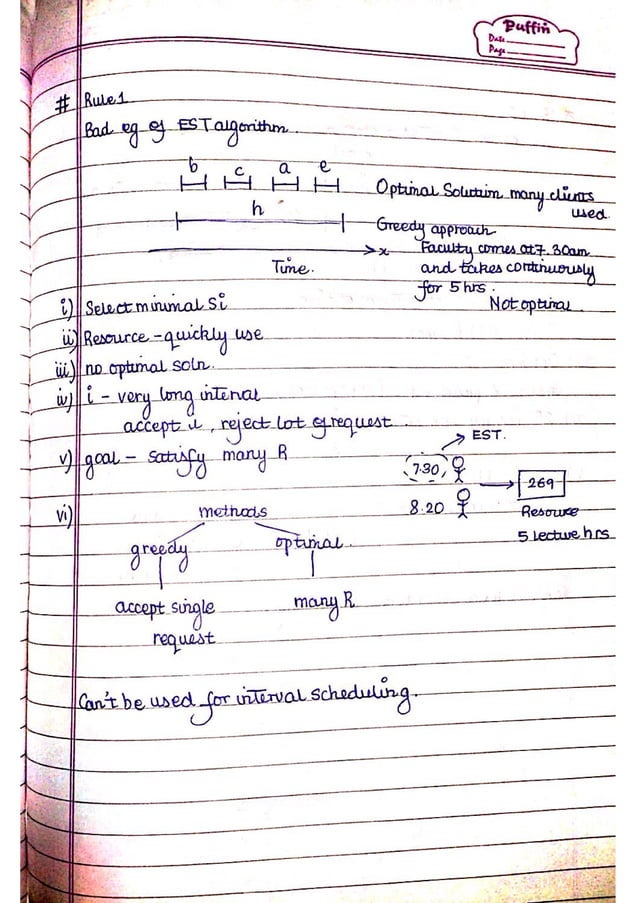 Puffin
Date
Page
# Rule 1
Bad eg of EST algorithm.
b c a e
Optimal Solution many clients used.
h
Greedy approach
x
Faculty comes at 7.30am
Time.
and takes continuously
for 5 hrs.
Not optimal.
i) Select minimal Si
ii) Resource - quickly use
iii) no optimal soln.
iv) i - very long interval
accept it, reject lot of request.
EST.
v) goal - satisfy many R
7.30,
269
8.20
Resource
5 lecture hrs
vi) methods
greedy optimal
accept single many R
request
Can't be used for interval scheduling.